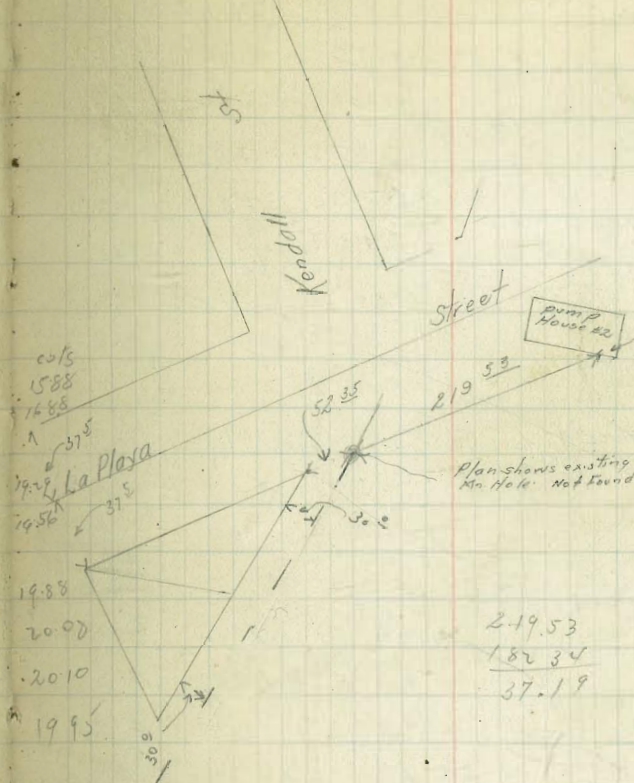 St
Kendall
Street
pump
House #2
cols
1588
1688
37⁵
52³⁵
219⁵³
La Playa
19.29
19.56
37⁵
Plan shows existing
Mn. Hole. Not found
30⁰
19.88
20.00
20.10
19.95
219.53
182.34
37.19
30⁰